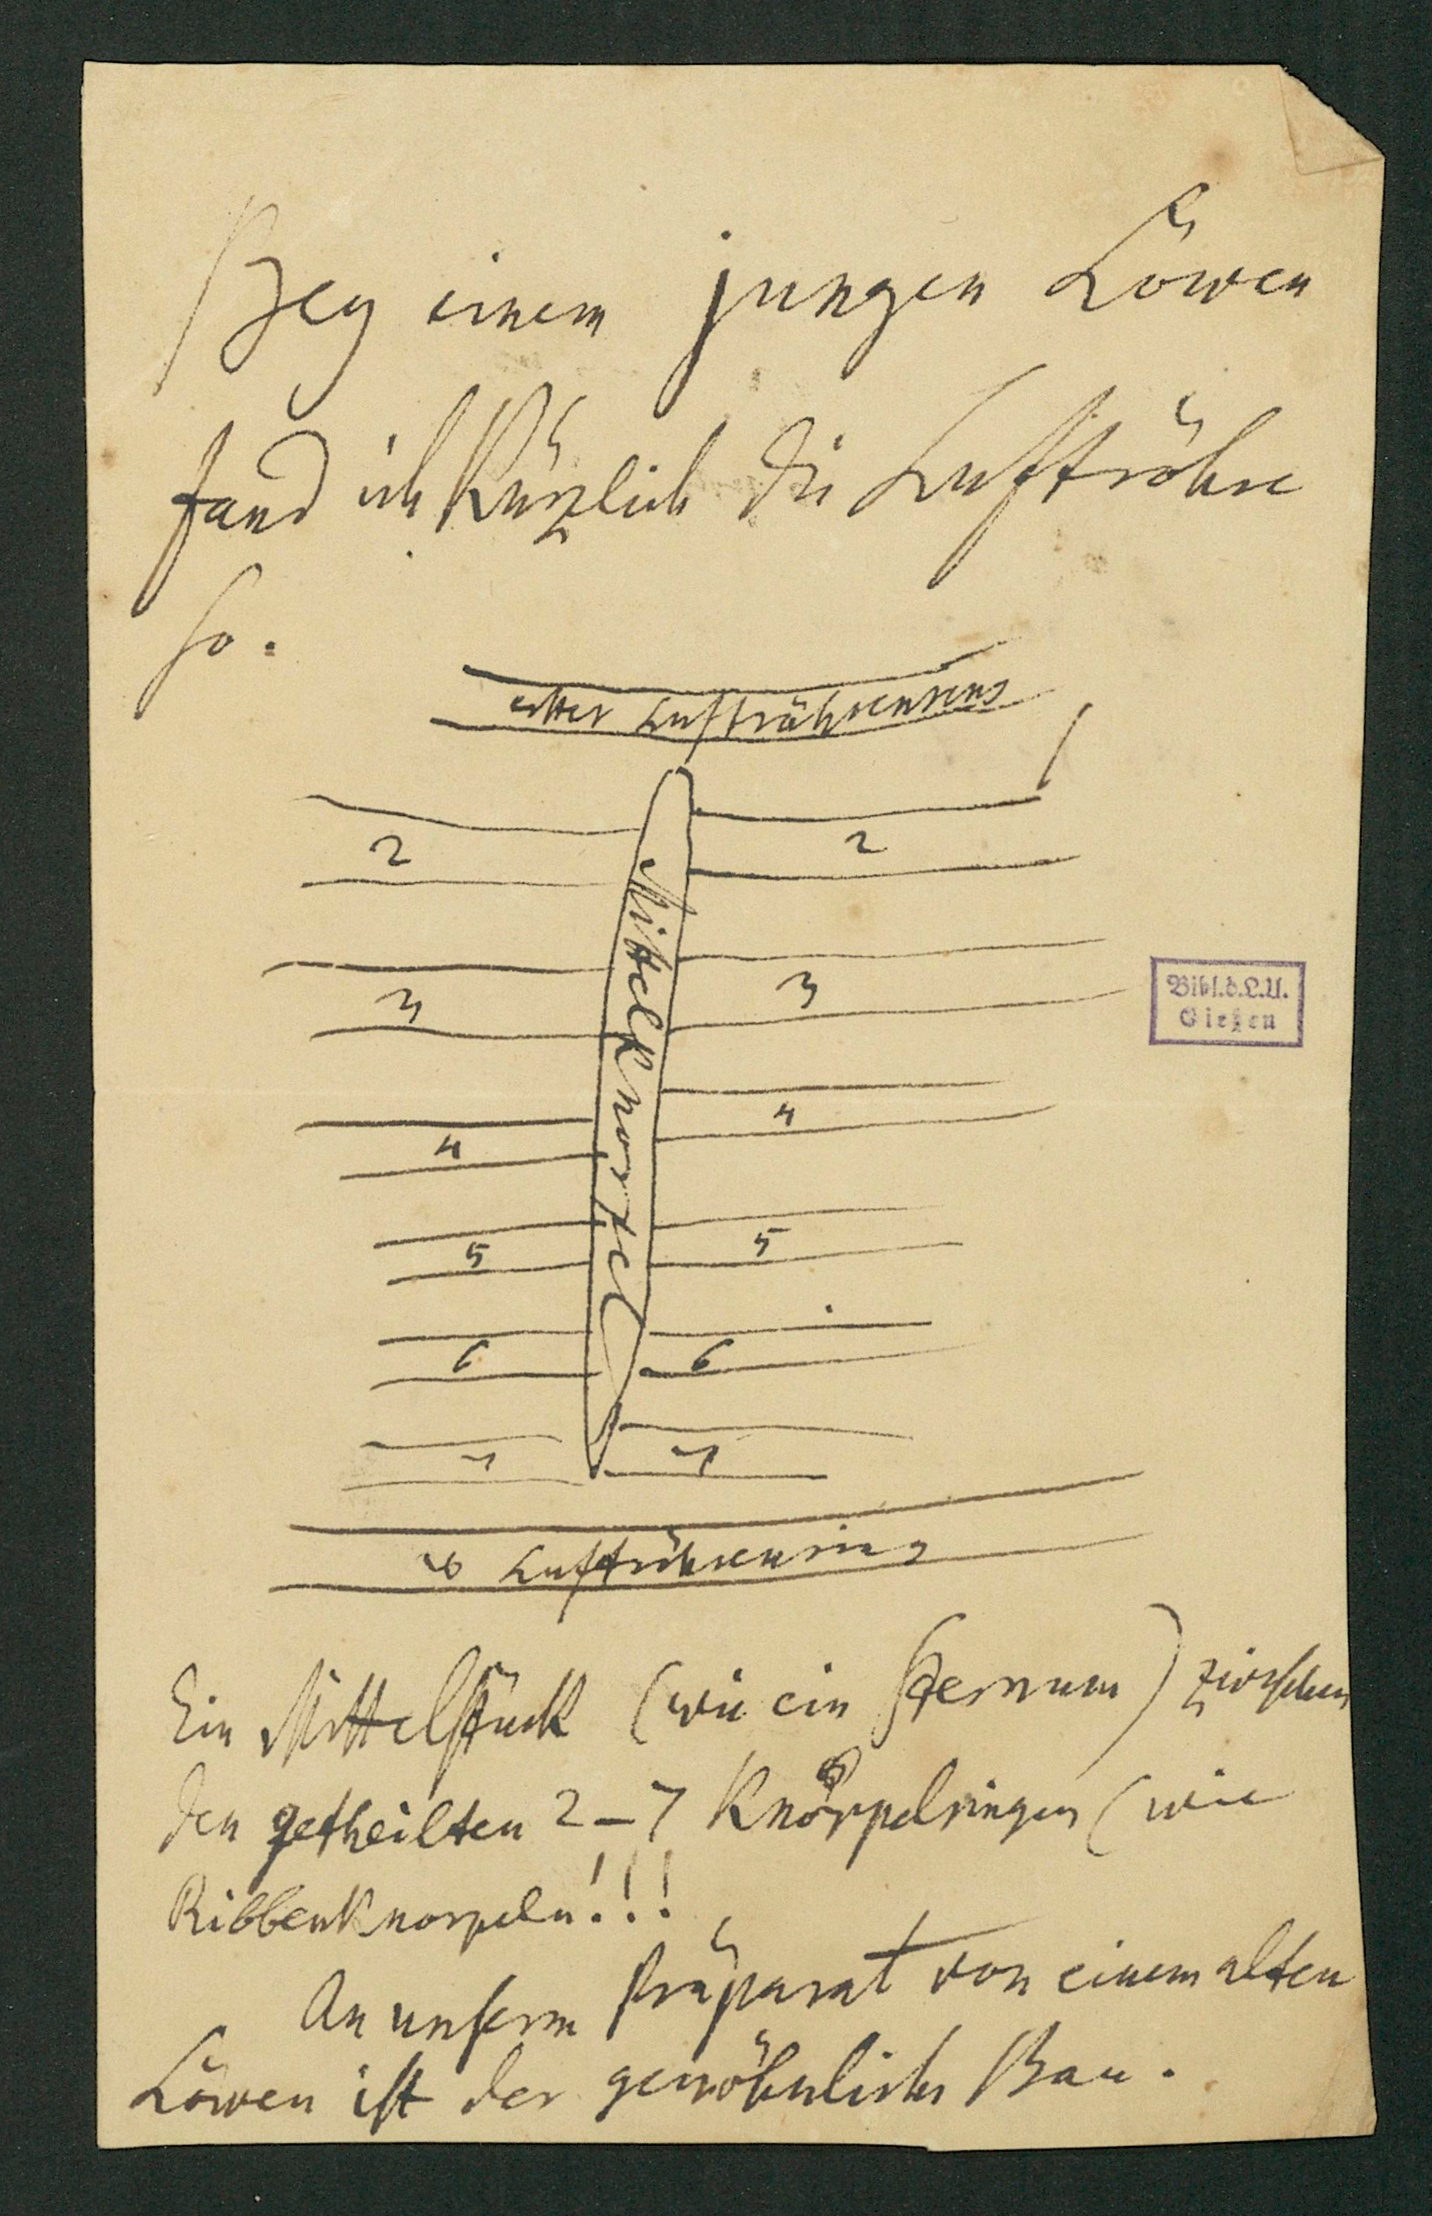 Bey einem jungen Löwen
fand ich Kürzlich die Luftröhre
so.
erster Luftröhrenring
2 2
3 3
4 4
5 5
6 6
7 7
Mittelknorpel
8 Luftröhrenring
Bibl.d.L.U.
Gießen
Ein Mittelstück (wie ein Sternum) zwischen
den getheilten 2-7 Knorpelringen (wie
Ribbenknorpeln!!!
An unserm Präparat von einem alten
Löwen ist der gewöhnliche Bau.